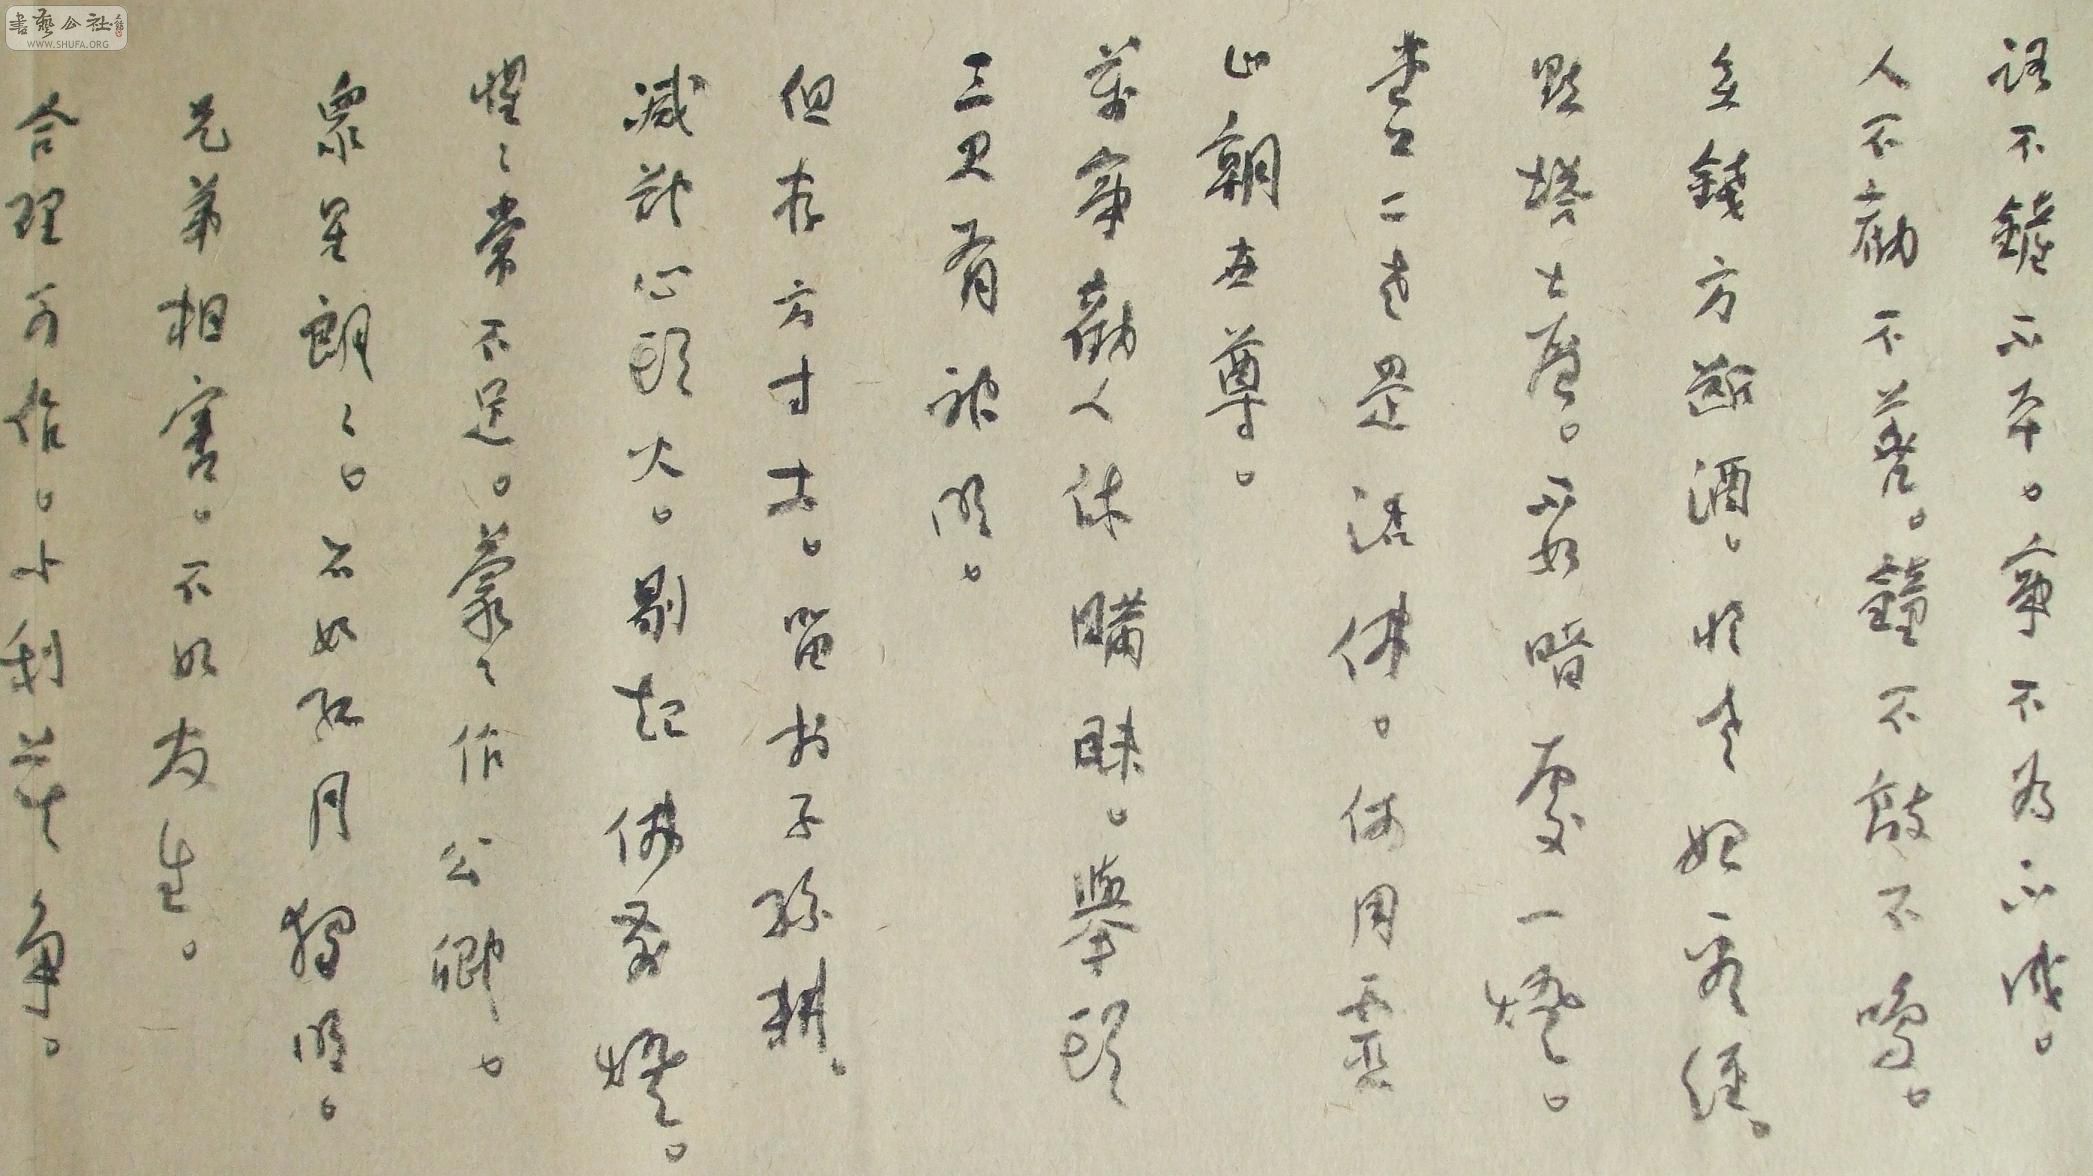 路不鏟不平。事不為不成。
人不勸不善。鐘不敲不鳴。
无錢方斷酒。临老始看經。
點塔七層。不如暗處一燈。
堂上二老是活佛。何用靈
山朝世尊。
萬事勸人休瞞昧。舉頭
三尺有神明。
但存方寸土。留於子孫耕。
減却心頭火。剔起佛前燈。
惺〻常不足。蒙〻作公卿。
衆星朗〻。不如孤月獨明。
兄弟相害。不如友生。
合理可作。小利莫爭。
書藝公社
WWW.SHUFA.ORG